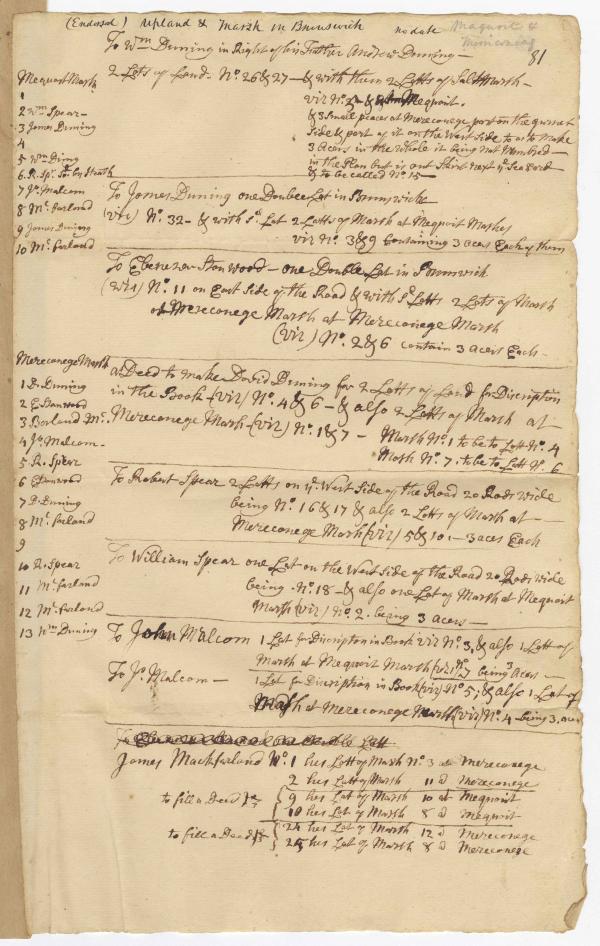 (Endorsed) Upland & Marsh in Brunswick no date Maquoit &
81
To Wm Duning in Right of his Father Andrew Duning —
2 Lots of Land - No. 26 & 27 — & with them 2 Lotts of Salt Marsh —
viz No. 5 & Maquoit.
& 3 Small peaces at Mereconege part on the
Side & part of it on the West Side to as to make
3 acers in the Whole it being not Numbred —
in the Plan but is out Skirt next ye Sea bord
& to be called No. 15 —
Mequoit Marsh
1
2 Wm Spear —
3 James Duning
4
5 Wm Dning
6
7 Jo. Malcom
8 Mc.farland
9 James Duning
10 Mc.farland
To James Duning one Double Lot in Brunswick
(viz) No. 32 - & with sd. Lot 2 Lotts of Marsh at Mequoit Mashes
viz No. 3 & 9 Containing 3 acers Each of them
To Ebenezer Stonwood — one Double Lot in Brunswick
(viz) No. 11 on East Side of the Road & with sd. Lotts 2 Lots of Marsh
at Mereconege Marsh at Mereconege Marsh
(viz) No. 2 & 6 contain 3 acers Each -
Mereconege Marsh
1 D. Duning
2 E Stanwood
3 Borland Mc.
4 Jo. Malcom -
5 R. Spear
6 Stanwood
7 D. Duning
8 Mc.farland
9
10 R. Spear
11 Mc.farland
12 Mc.farland
13 Wm Duning
a Deed to make David Duning for 2 Lotts of Land for Discription
in the Book - (viz) No. 4 & 6 - & also 2 Lotts of Marsh at
Mereconege Marsh - (viz) No. 1 & 7 - Marsh No. 1 to be to Lott No. 4
Mash No. 7. to be to Lott No. 6
To Robert Spear 2 Lotts on ye West Side of the Road 20 Rods wide
being No. 16 & 17 & also 2 Lotts of Marsh at —
Mereconege Marsh (viz) 5 & 10. - 3 aces Each
To William Spear one Lot on the West Side of the Road 20 Rods wide
being No. 18 - & also one Lot of Marsh at Mequoit
Marsh (viz) No. 2. being 3 acers —
To John Malcom 1 Lot for Discription in Book viz No. 3, & also 1 Lott of
Marsh at Mequoit Marsh (viz) No. 7 being 3 acers —
To Jo. Malcom — 1 Lot for Discription in Book (viz) No. 5; & also 1 Lot of
Mash at Mereconege Marsh (viz) No. 4 being 3 acers
James Mackfarland No. 1 hes Lott of Marsh No. 3 at Mereconege
2 hes Lott of Marsh 11 d Mereconege
to fill a Deed { 9 hes Lot of Marsh 10 at Mequoit
10 hes Lot of Marsh 8 d Mequoit
to fill a Deed { 24 hes Lot of Marsh 12 d Mereconege
25 hes Lot of Marsh 8 d Mereconege